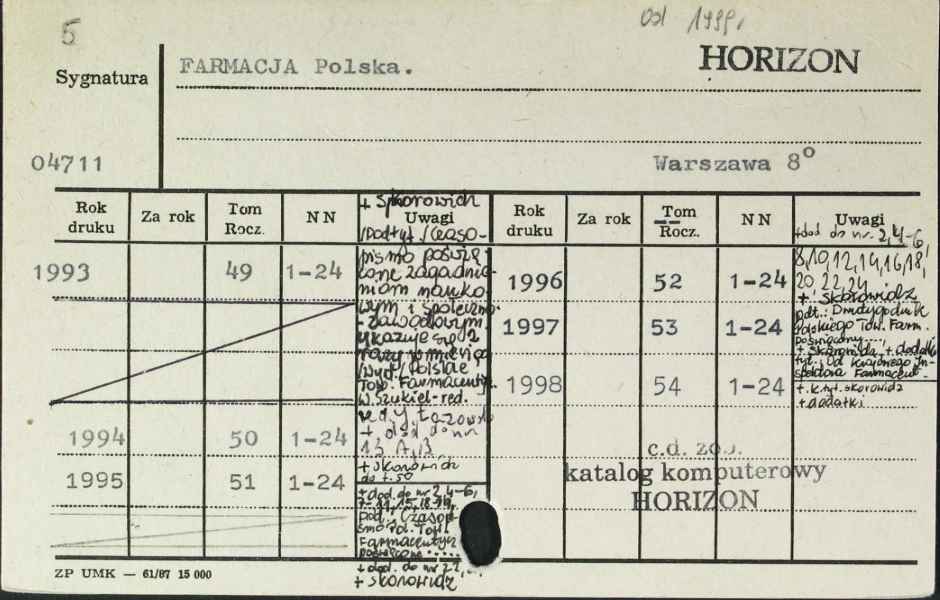 5
Od 1999r
HORIZON
Sygnatura
FARMACJA Polska.
04711
Warszawa 8°
Rok druku Za rok Tom Rocz. NN Uwagi Rok druku Za rok Tom Rocz. NN Uwagi
+ skorowidz
/Podtyt./Czaso-
pismo poświę-
cone zagadnie-
niom nauko-
wym i społeczno-
-zawodowym.
Ukazuje się 2
razy w miesiącu
/Wyd./ Polskie
Tow. Farmaceuty.
W. Szukiel-red.
1993 49 1-24
1994 50 1-24
13 A, B
+ skorowidz
do t. 50
1995 51 1-24
+ dod. do nr 2, 4-6,
pod.: Czasopi-
smo Pol. Tow.
Farmaceutycz
poświęcone .....
+ dod. do nr 22,
+ skorowidz
+ dod do nr. 2, 4-6,
8, 10, 12, 14, 16, 18,
20, 22, 24
+ skorowidz
1996 52 1-24
pdt.: Dwutygodnik
Polskiego Tow. Farm.
poświęcony
+ skorowidz, + dodatki
tyt. Od Krajowego In-
spektora Farmaceut.
1997 53 1-24
1998 54 1-24
+ k. tyt. skorowidz
+ dodatki
c.d. zob.
katalog komputerowy
HORIZON
ZP UMK — 61/87 15 000